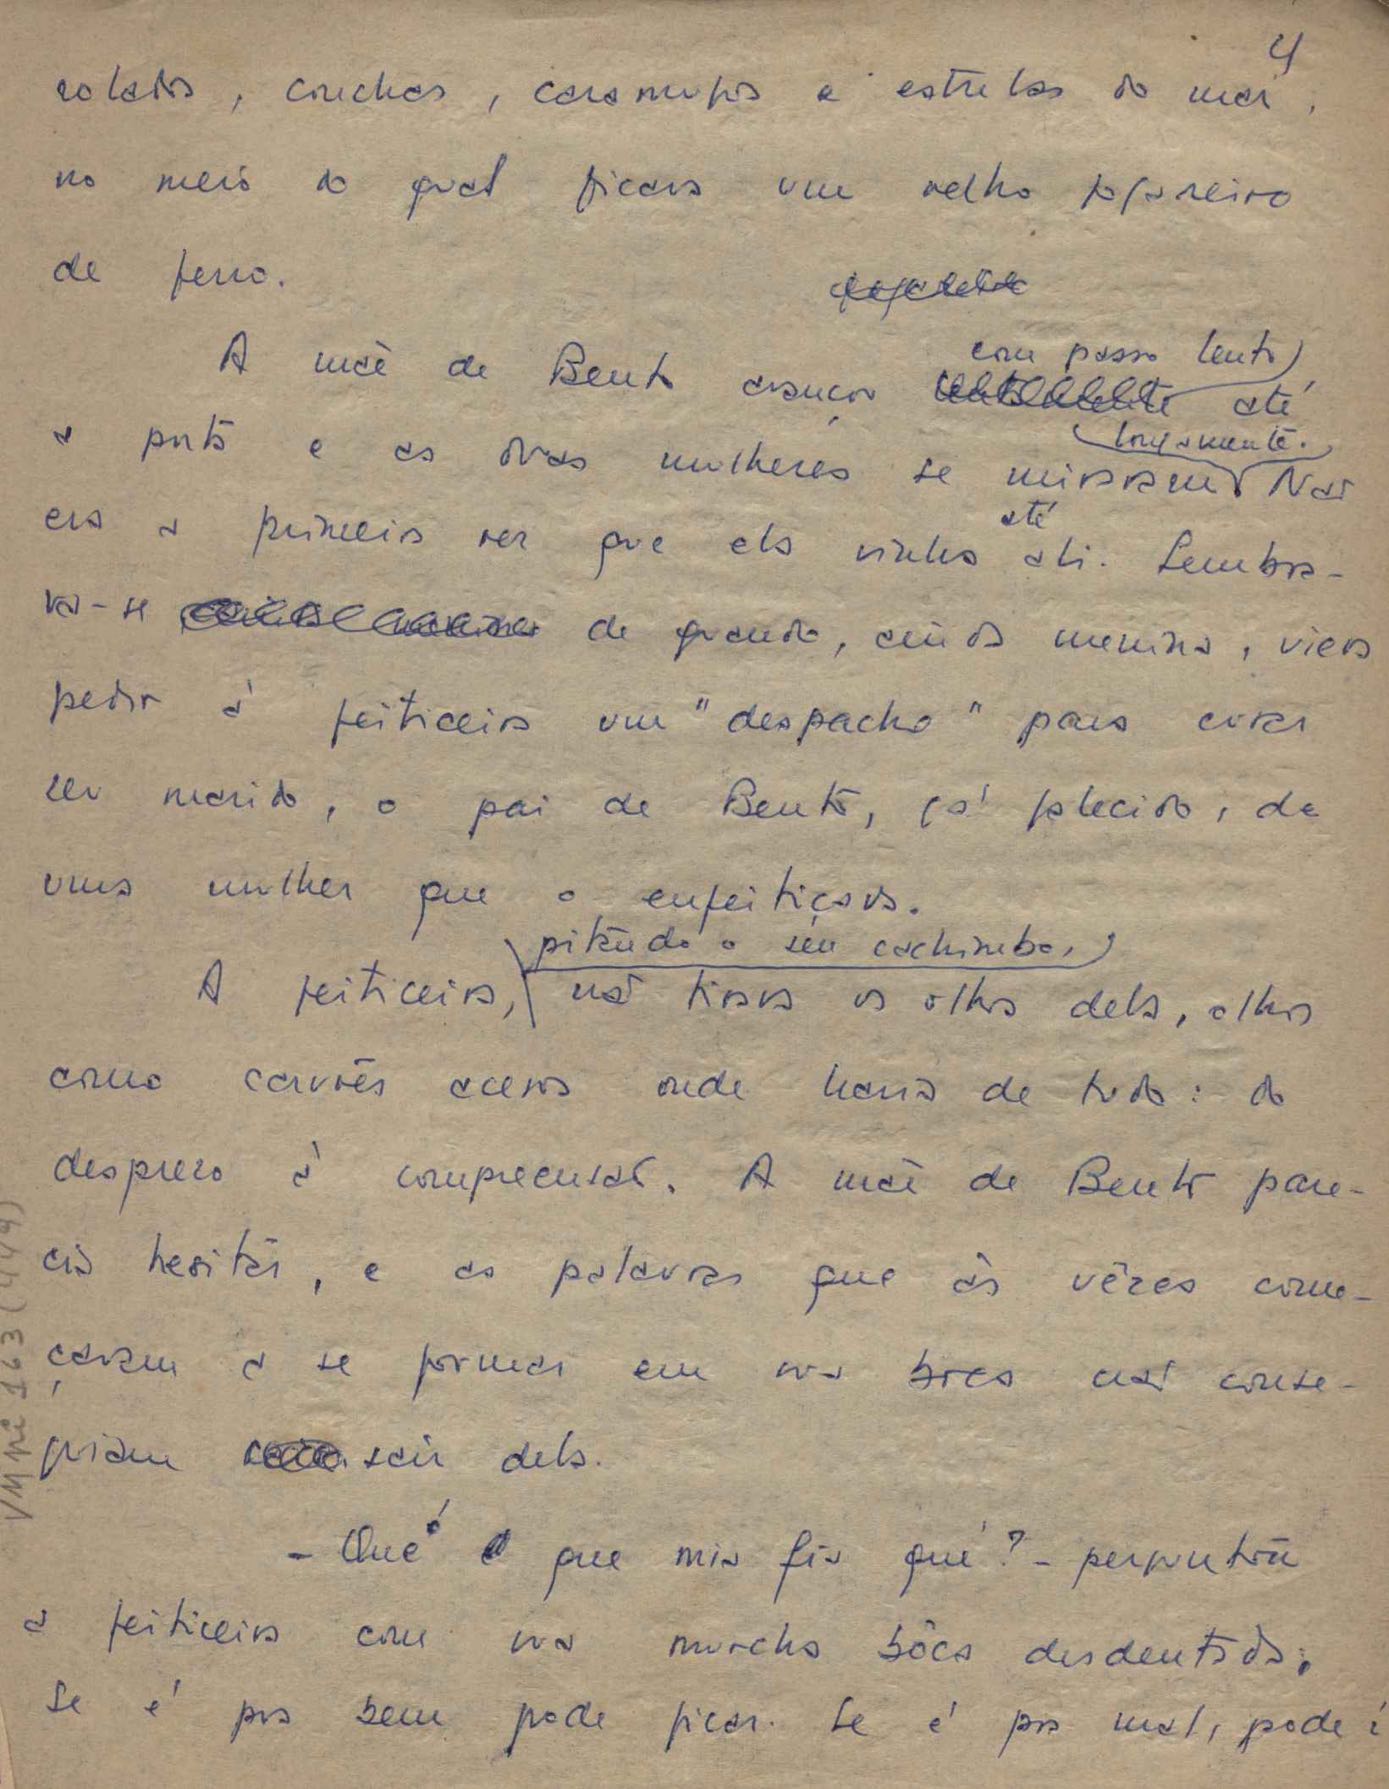 4
rolados, conchas, caramujos e estrelas do mar,
no meio do qual ficava um velho fogareiro
de ferro.
com passo lento
A mãe de Bento avançou até
longamente.
a porta e as duas mulheres se miraram. Não
até
era a primeira vez que ela vinha ali. Lembra-
va-se de quando, ainda menina, viera
pedir à feiticeira um "despacho" para curar
seu marido, o pai de Bento, já falecido, de
uma mulher que o enfeitiçava.
pitando o seu cachimbo,
A feiticeira, não tirava os olhos dela, olhos
como carvões acesos onde havia de tudo: do
desprezo à compreensão. A mãe de Bento pare-
cia hesitar, e as palavras que às vêzes come-
çavam a se formar em sua boca não conse-
guiam sair dela.
- Que é que mia fia qué? - perguntou
a feiticeira com sua murcha bôca desdentada.
Se é pra bem pode ficar. Se é pra mal, pode i
VMpi 163 (449)